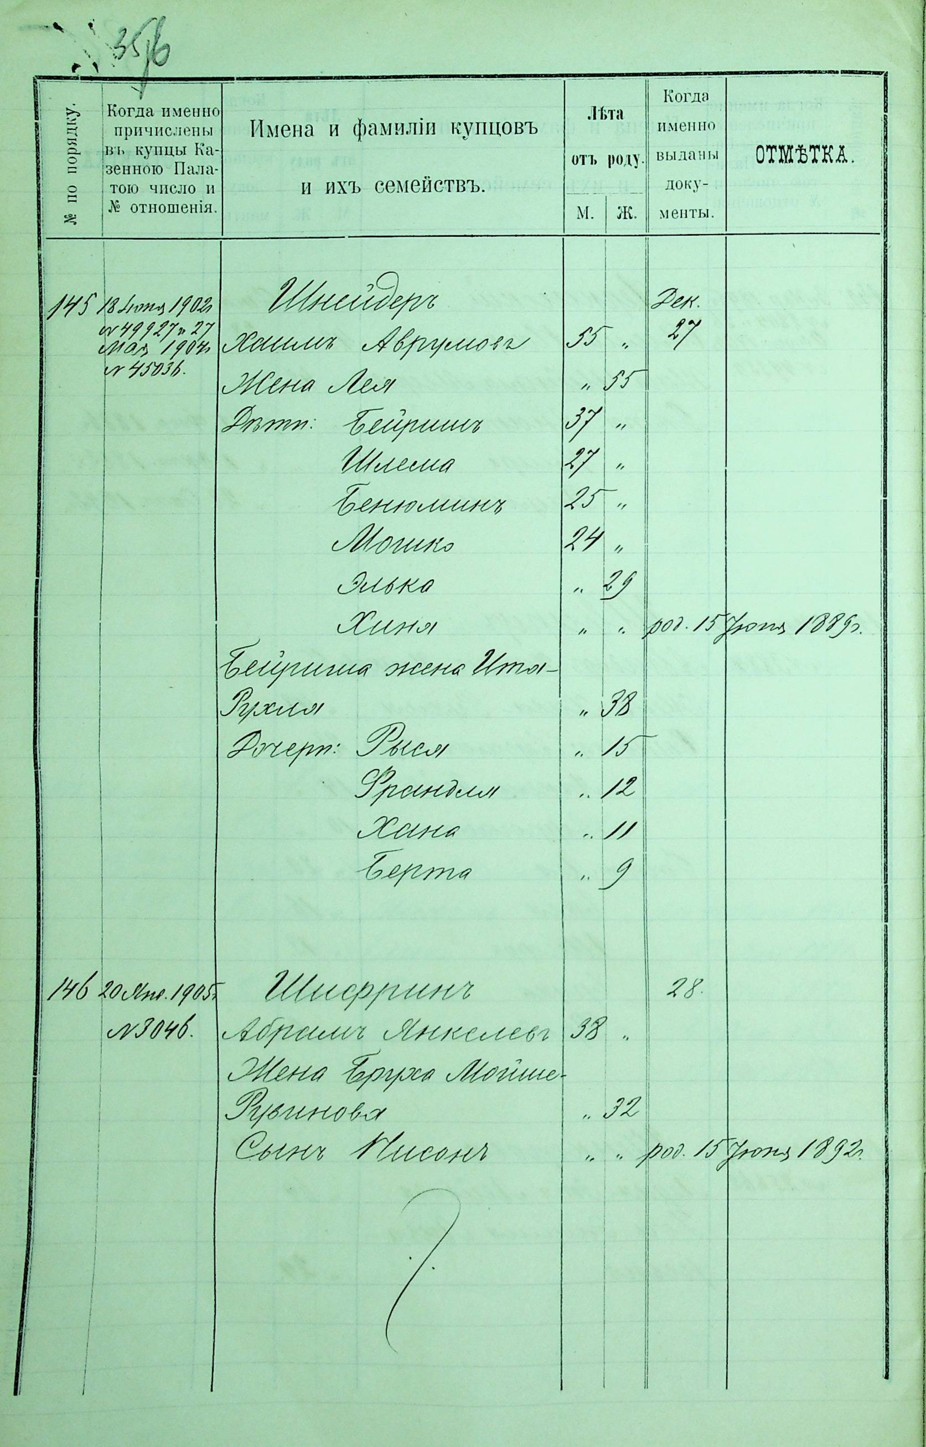 356
№ по порядку.
Когда именно причислены въ купцы Казенною Палатою число и № отношенія.
Имена и фамиліи купцовъ и ихъ семействъ.
Лѣта отъ роду.
М. Ж.
Когда именно выданы документы.
ОТМѢТКА.
145 18 Іюня 1902г Шнейдеръ Дек.
№ 49927 и 27 27
Мая 1904г Хаимъ Аврумовъ 55 „
№ 45036.
Жена Лея „ 55
Дѣти: Бейришъ 37 „
Шлема 27 „
Бенюминъ 25 „
Мошко 24 „
Элька „ 29
Хиня „ „ род. 15 Іюня 1889г.
Бейриша жена Итя-
Рухля „ 38
Дочери: Рыся „ 15
Франдля „ 12
Хана „ 11
Берта „ 9
146 20 Янв. 1905г Шифринъ 28.
№ 3046. Абрамъ Янкелевъ 38 „
Жена Бруха Мойше-
Рувинова „ 32
Сынъ Нисонъ „ „ род. 15 Іюня 1892г.